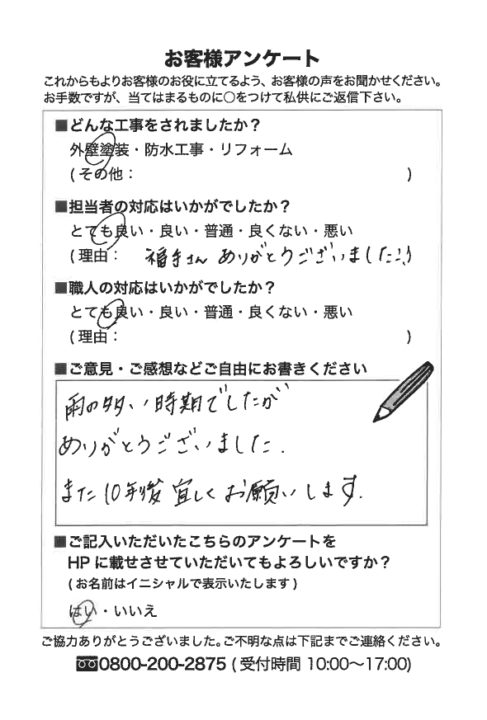 お客様アンケート
これからもよりお客様のお役に立てるよう、お客様の声をお聞かせください。
お手数ですが、当てはまるものに○をつけて私供にご返信下さい。
■どんな工事をされましたか?
外壁塗装・防水工事・リフォーム
(その他: )
■担当者の対応はいかがでしたか?
とても良い・良い・普通・良くない・悪い
(理由: 福手さん ありがとうございました!)
■職人の対応はいかがでしたか?
とても良い・良い・普通・良くない・悪い
(理由: )
■ご意見・ご感想などご自由にお書きください
雨の多い時期でしたが
ありがとうございました.
また10年後宜しくお願いします.
■ご記入いただいたこちらのアンケートを
HPに載せさせていただいてもよろしいですか?
(お名前はイニシャルで表示いたします)
はい・いいえ
ご協力ありがとうございました。ご不明な点は下記までご連絡ください。
0800-200-2875 (受付時間 10:00〜17:00)